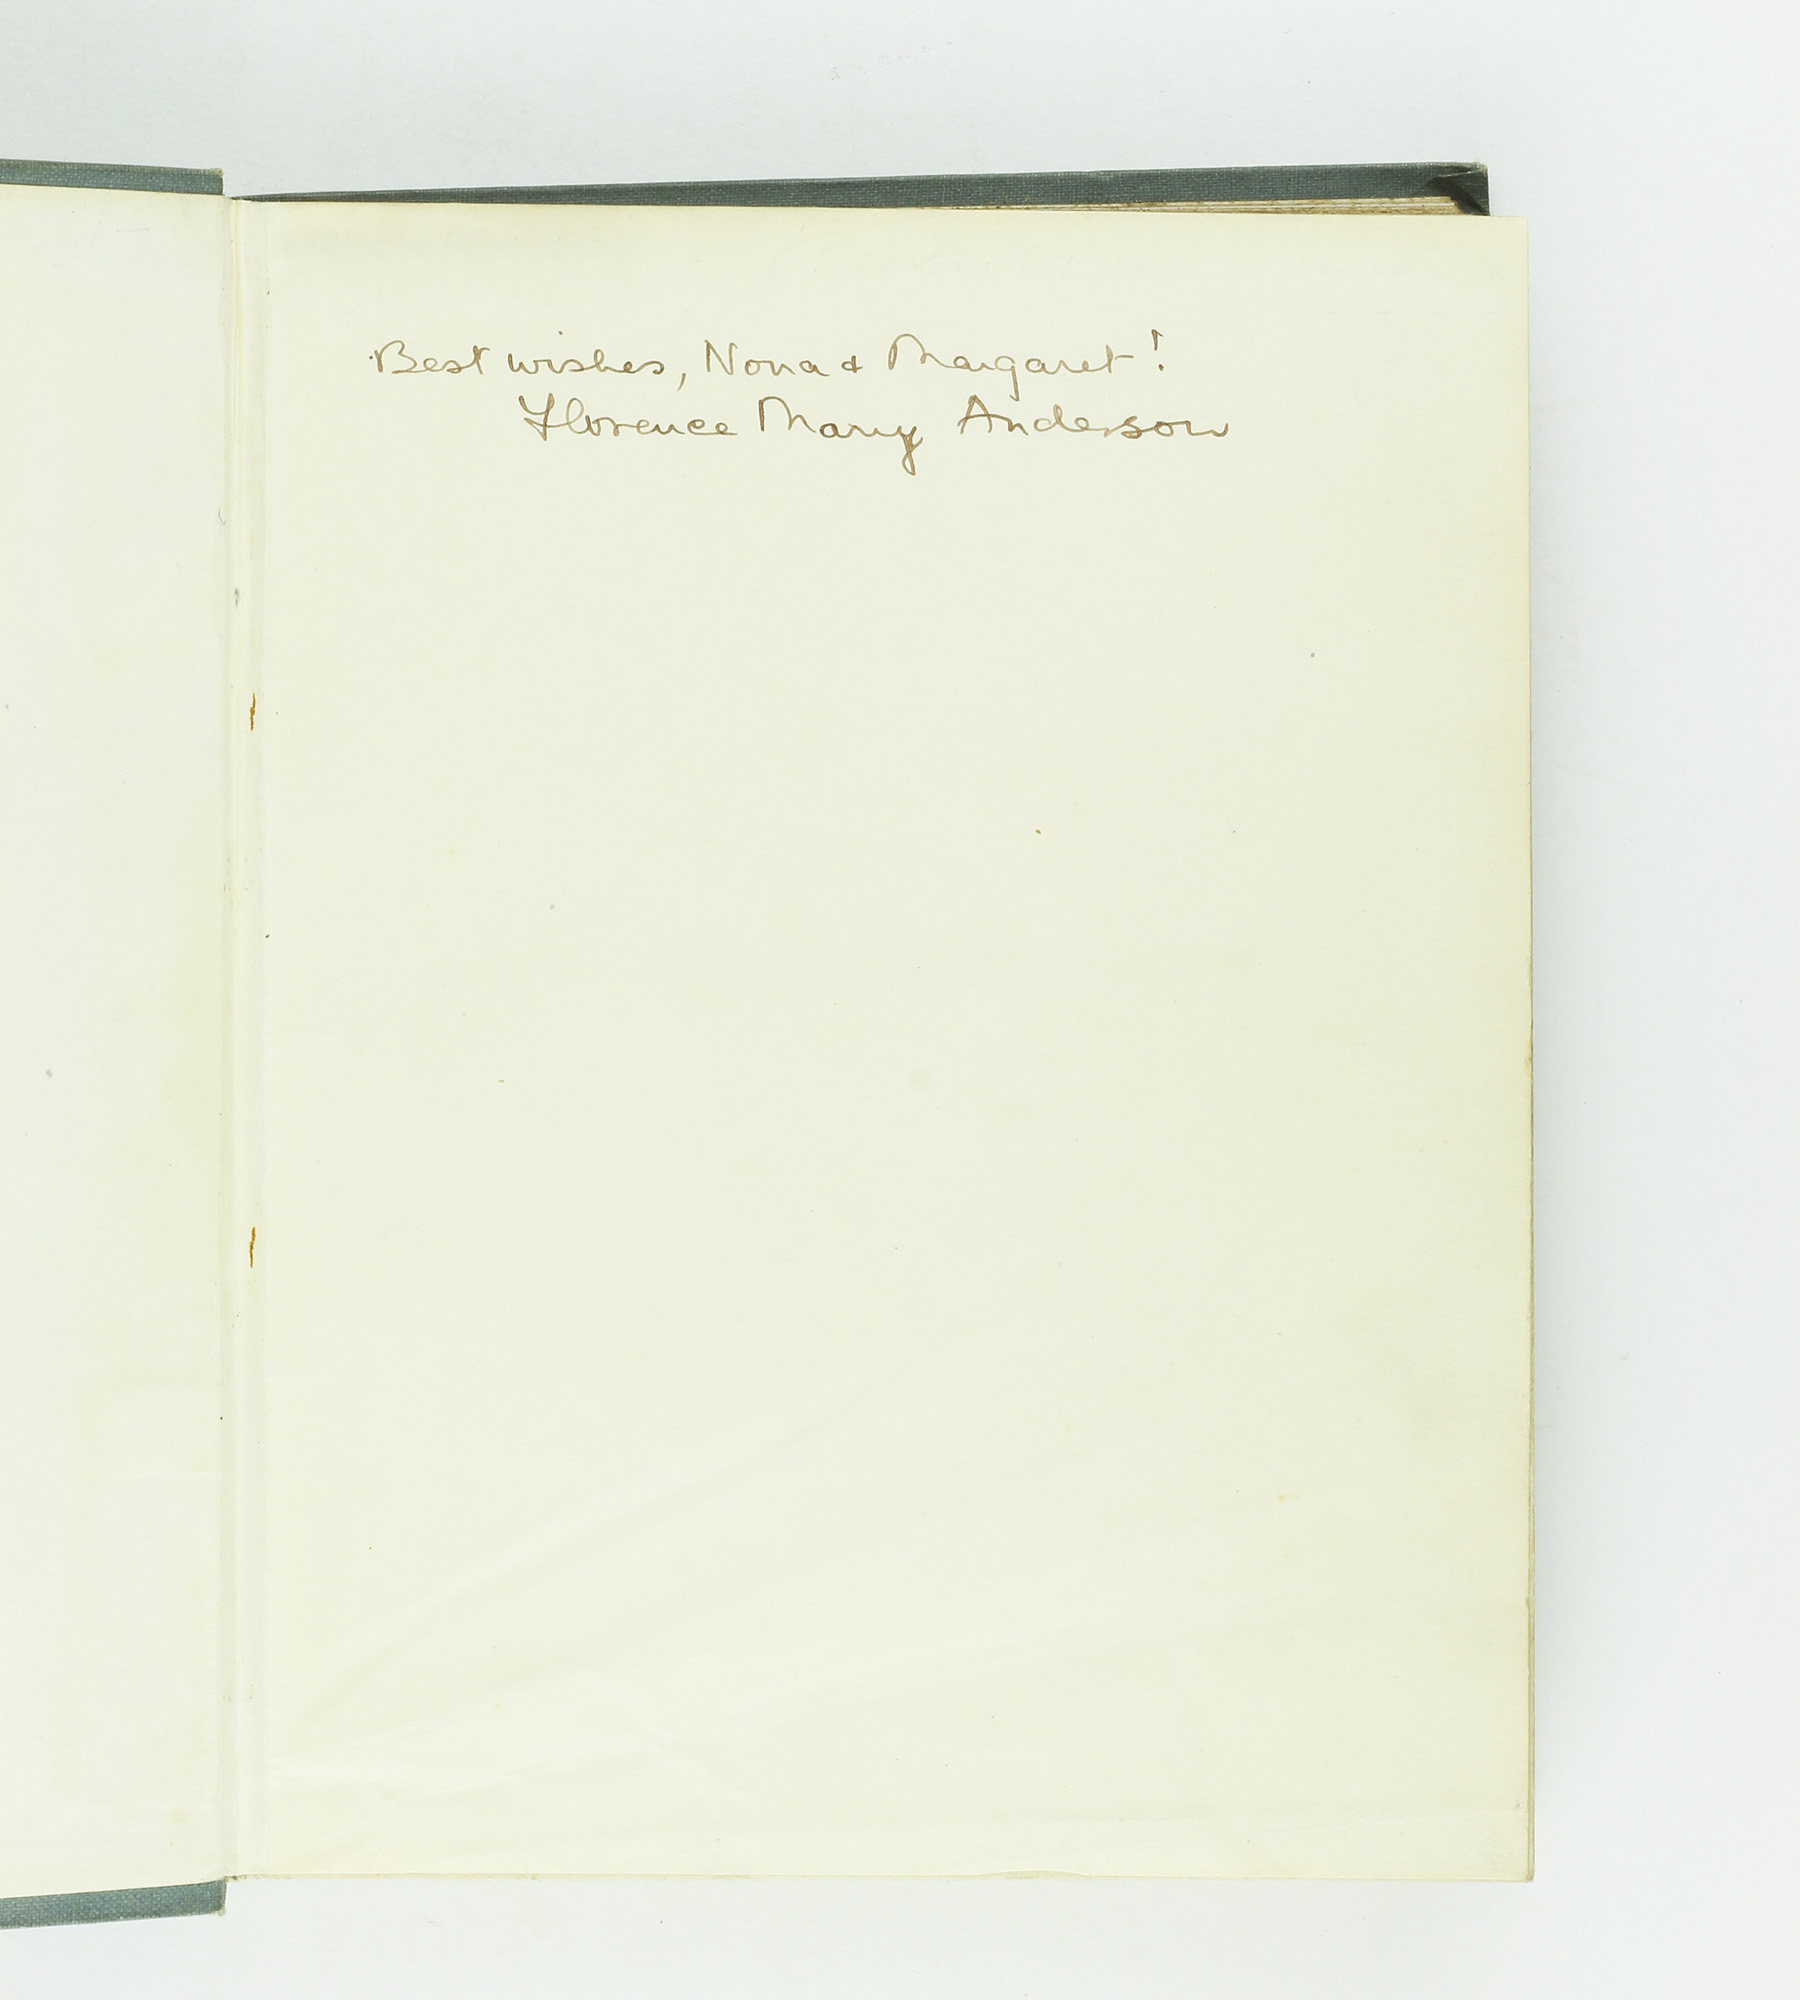 Best wishes, Nona & Margaret!
Florence Mary Anderson